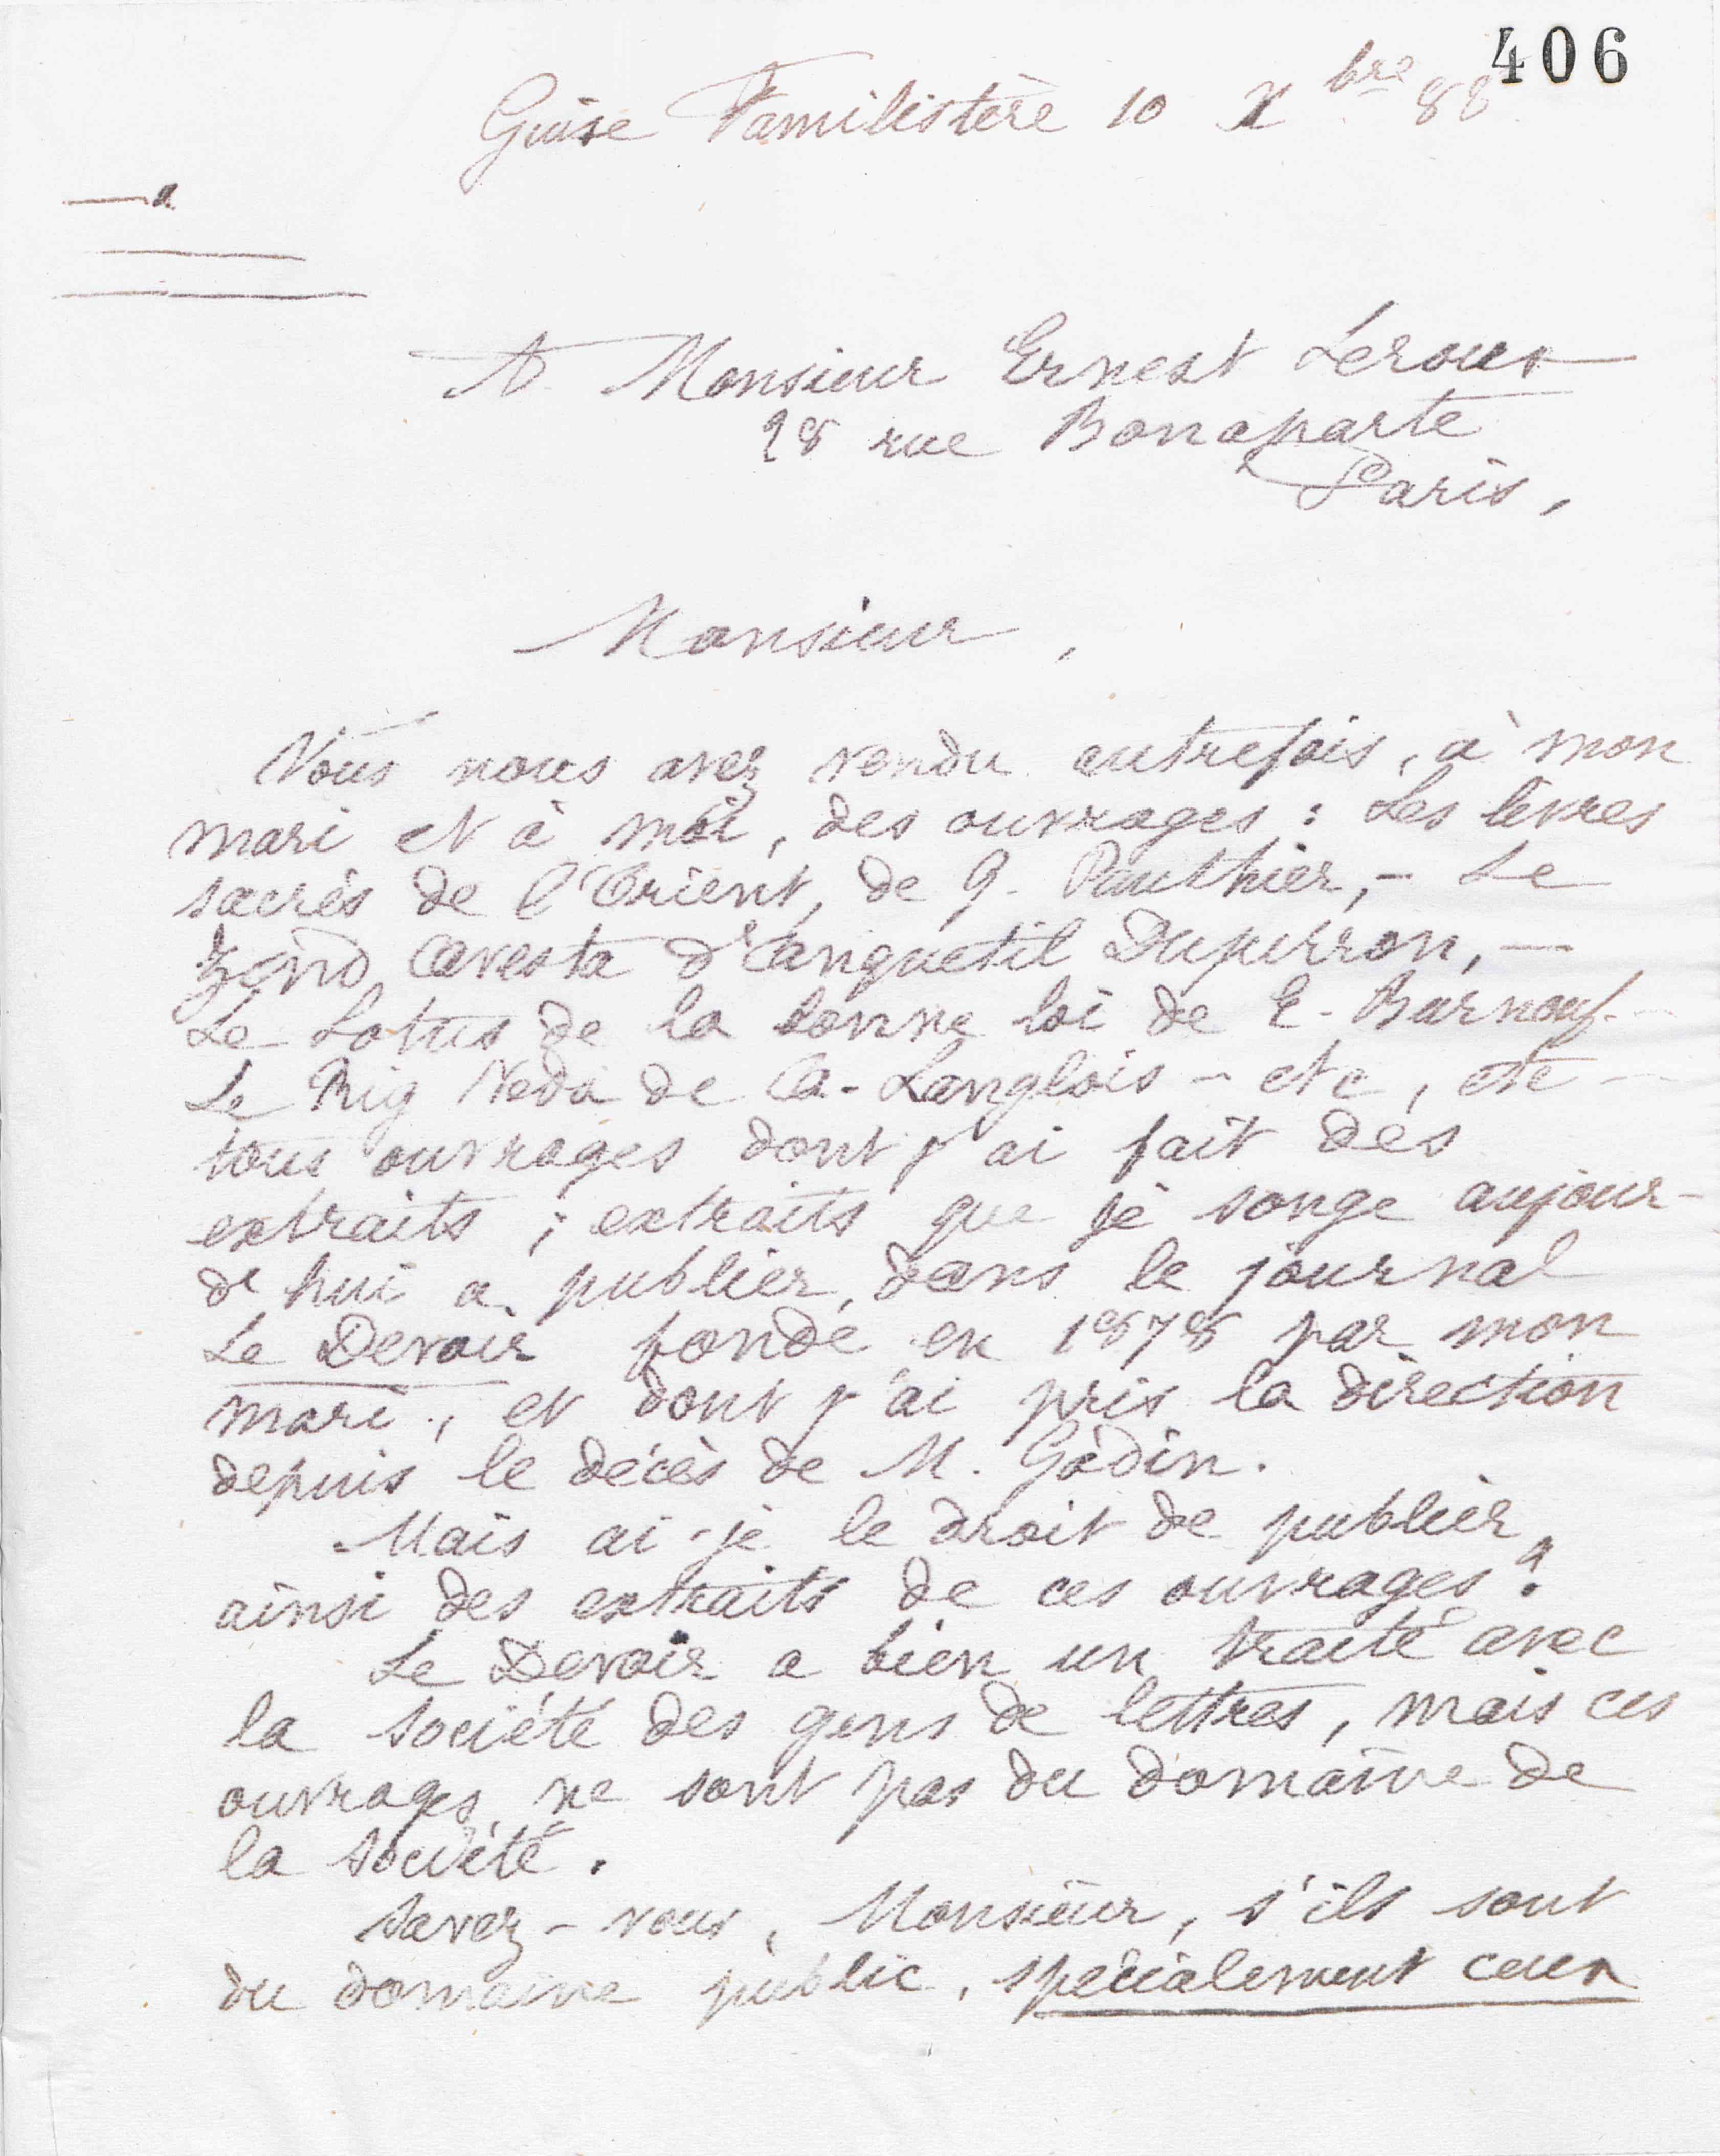 406
Guise Familistère 10 Xbre 88
a
A Monsieur Ernest Leroux
28 rue Bonaparte
Paris,
Monsieur,
Vous nous avez vendu autrefois, à mon
mari et à moi, des ouvrages : Les livres
sacrés de l'Orient, de G. Pauthier, - Le
Zend Avesta d'Anquetil Duperron, —
Le Lotus de la bonne loi de E. Burnouf. -
Le Rig Veda de A. Langlois - etc, etc -
tous ouvrages dont j'ai fait des
extraits ; extraits que je songe aujour-
d'hui a publier, dans le journal
Le Devoir fondé en 1878 par mon
mari, et dont j'ai pris la direction
depuis le décès de M. Godin.
Mais ai-je le droit de publier
ainsi des extraits de ces ouvrages ?
Le Devoir a bien un traité avec
la société des gens de lettres, mais ces
ouvrages ne sont pas du domaine de
la société.
Savez-vous, Monsieur, s'ils sont
du domaine public, spécialement ceux